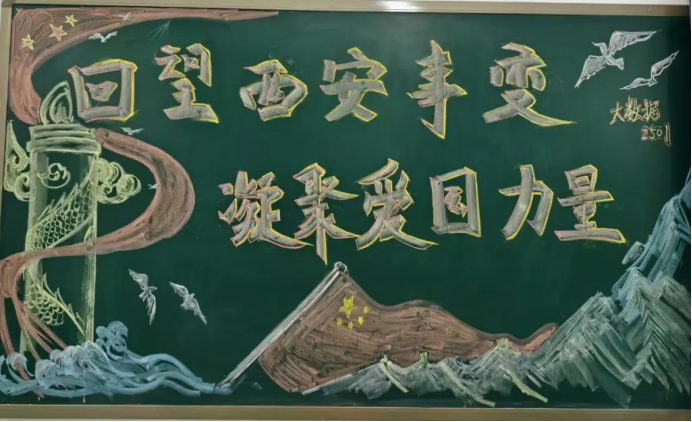 回望西安事变
大数据
2501
凝聚爱国力量